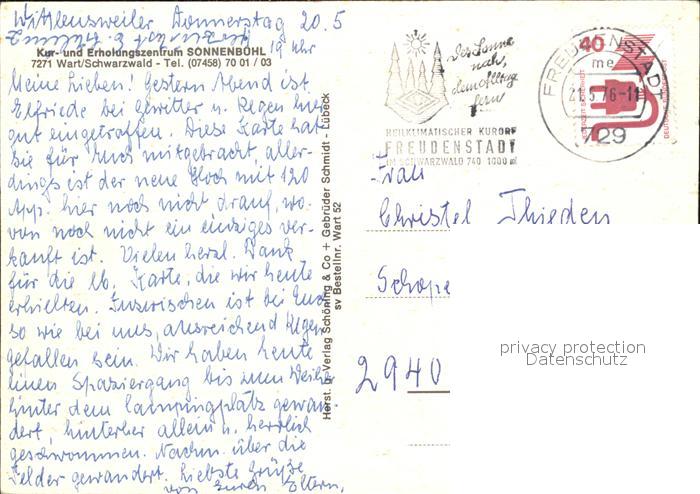 Wittlensweiler Donnerstag 20.5
19 Uhr
Kur- und Erholungszentrum SONNENBÜHL
7271 Wart/Schwarzwald - Tel. (07458) 70 01 / 03
Meine Lieben! Gestern Abend ist
Elfriede bei Gewitter u. Regen hier
gut eingetroffen. Diese Karte hat
sie für Euch mitgebracht, aller-
dings ist der neue Block mit 120
App. hier noch nicht drauf, wo-
von noch nicht ein einziges ver-
kauft ist. Vielen herzl. Dank
für die lb. Karte, die wir heute
erhielten. Inzwischen ist bei Euch
so wie bei uns, ausreichend Regen
gefallen sein. Wir haben heute
einen Spaziergang bis zum Weiher
hinter dem Campingplatz gewan-
dert, hinterher allein u. herrlich
geschwommen. Nachm. über die
Felder gewandert. Liebste Grüße
von Euren Eltern,
Herst. u. Verlag Schöning & Co + Gebrüder Schmidt - Lübeck
sv Bestellnr. Wart 52
Der Sonne
nach,
dem Alltag
fern
HEILKLIMATISCHER KURORT
FREUDENSTADT
IM SCHWARZWALD 740-1000 m
FREUDENSTADT 1
me
21.5.76-11
729
40
DEUTSCHE BUNDESPOST
Frau
Christel Thieden
Schope
2940
privacy protection
Datenschutz